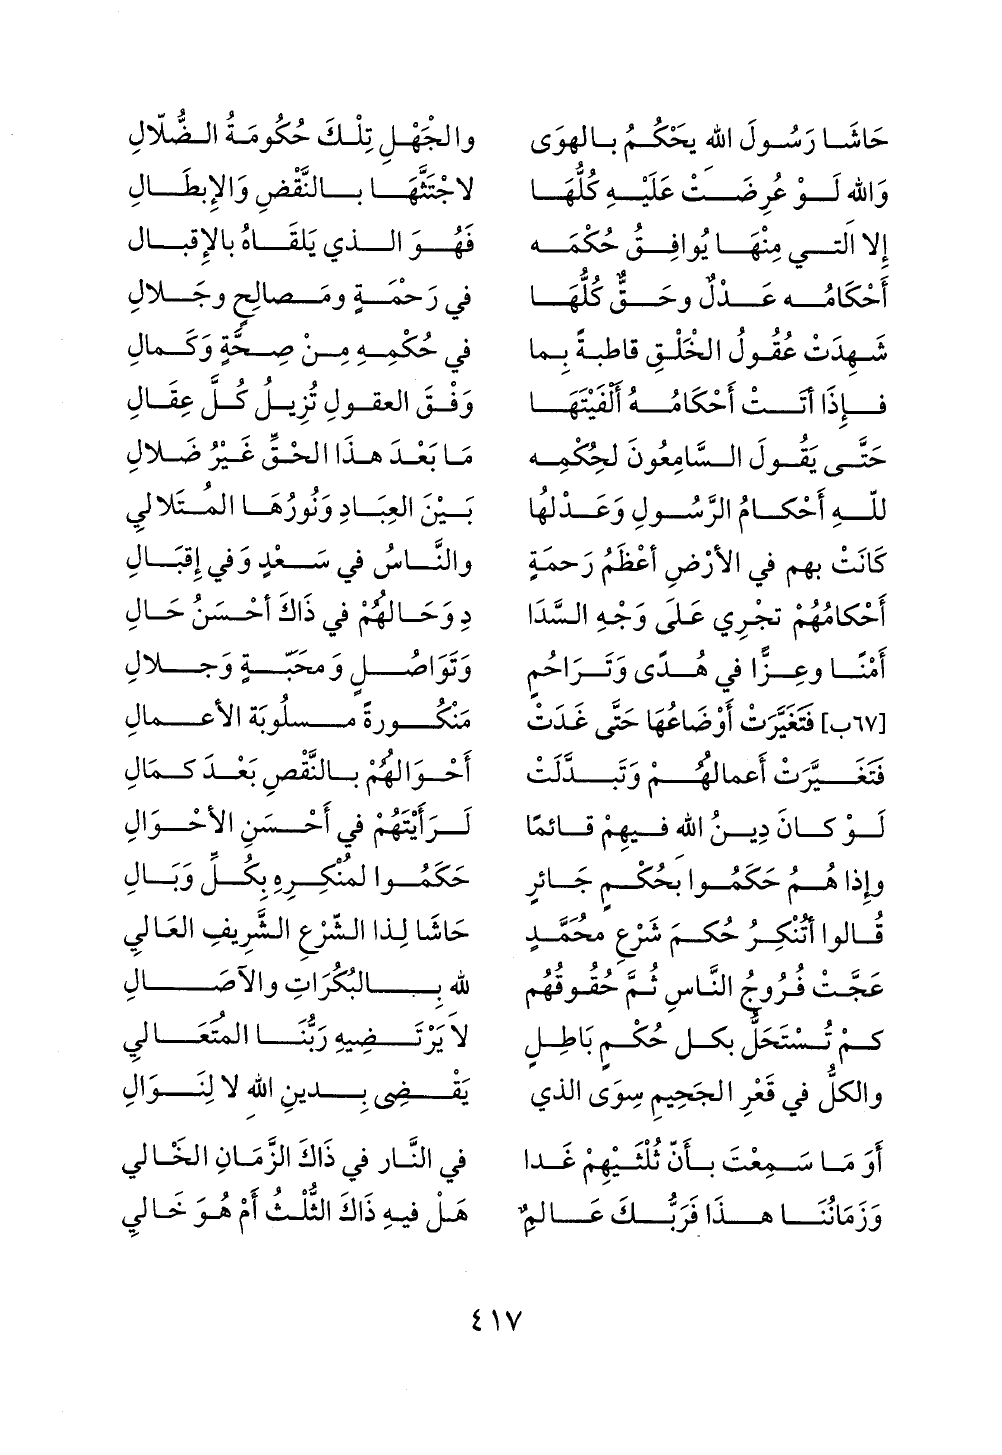 حَاشَا رَسُولَ الله يَحْكُمُ بالهوَى والجْهْلِ تِلْكَ حُكُومَةُ الضُّلّالِ
وَالله لَوْ عُرِضَتْ عَلَيْهِ كُلُّهَا لاجْتَثَّهَا بالنَّقْضِ وَالإبطَالِ
إلا التي مِنْهَا يُوافِقُ حُكْمَه فَهُوَ الذي يَلقَاهُ بالإقبَال
أحْكَامُه عَدْلٌ وحَقٌّ كُلُّهَا في رَحْمَةٍ ومَصالحٍ وجَلالِ
شَهِدَتْ عُقُولُ الخَلْقِ قاطبةً بِما في حُكْمِهِ مِنْ صِحَّةٍ وَكَمالِ
فإذَا أتَتْ أحْكَامُهُ ألْفَيْتَهَا وَفْقَ العقولِ تُزِيلُ كُلَّ عِقَالِ
حَتَّى يَقُولَ السَّامِعُونَ لحِكْمِه مَا بَعْدَ هذَا الحْقِّ غَيْرُ ضَلالِ
للّهِ أحْكامُ الرَّسُولِ وَعَدْلهُا بَيْنَ العِبَادِ وَنُورُهَا المُتَلالي
كَانَتْ بهِم في الأرْضِ أعْظَمُ رَحمةٍ والنَّاسُ في سَعْدٍ وَفي إقبَالِ
أحْكامُهُمْ تجْرِي عَلَى وَجْهِ السَّدَا دِ وَحَالهُمْ في ذَاكَ أحْسَنُ حَالِ
أمْنًا وعِزًّا في هُدًى وَتَرَاحُمٍ وَتَوَاصُلٍ وَمحَبَّةٍ وَجلالِ
[٦٧ب] فَتَغَيَّرَتْ أوْضَاعُهَا حَتَّى غَدَتْ مَنْكُورةً مسْلُوبَة الأعْمالِ
فتَغَيَّرَتْ أعمالهُمْ وَتَبدَّلَتْ أحْوَالهُمْ بالنَّقْصِ بَعْدَ كمالِ
لَوْ كَانَ دِينُ الله فيهِمْ قائمًا لَرأيْتَهُمْ في أحْسَنِ الأحْوَالِ
وإذا هُمُ حَكَمُوا بحُكْمٍ جَائرٍ حَكَمُوا لمُنْكِرِهِ بِكُلِّ وَبَالِ
قُالوا أتُنْكِرُ حُكمَ شَرْعِ محَمَّدٍ حَاشَا لِذا الشّرْعِ الشَّرِيفِ العَالي
عَجَّتْ فُرُوجُ النَّاسِ ثُمَّ حُقُوقُهُم لله بِالبُكَرَاتِ والآصَالِ
كَمْ تُسْتَحَلُّ بكلِ حُكْمٍ بَاطِلٍ لا يَرْتَضِيهِ رَبُّنَا المتُعَالي
والكلُّ في قَعْرِ الجَحِيمِ سِوَى الذي يَقْضِى بِدينِ الله لا لِنَوَالِ
أوَ مَا سَمِعْتَ بأنّ ثُلْثَيْهِمْ غَدا في النَّار في ذَاكَ الزَّمَانِ الخَالي
وَزَمَانُنَا هذَا فَرَبُّكَ عَالمٌ هَلْ فيهِ ذَاكَ الثُّلْثُ أمْ هُوَ خَالي
٤١٧